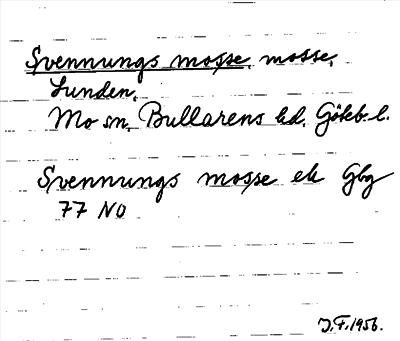 Svennungs mosse, mosse,
Lunden,
Mo sn, Bullarens hd, Göteb. l.
Svennungs mosse ek Gbg
77 NO
J.F. 1956.